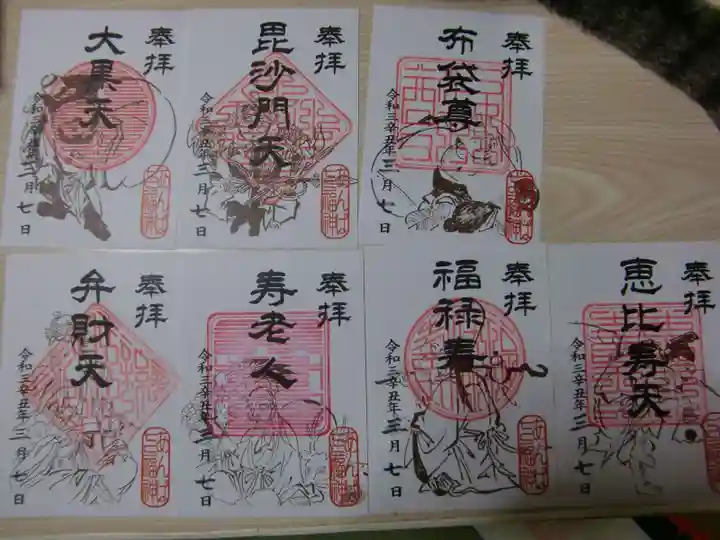 奉拝
大黒天
令和三辛丑年三月七日
奉拝
毘沙門天
令和三辛丑年三月七日
奉拝
布袋尊
令和三辛丑年三月七日
奉拝
弁財天
令和三辛丑年三月七日
奉拝
寿老人
令和三辛丑年三月七日
奉拝
福禄寿
令和三辛丑年三月七日
奉拝
恵比寿天
令和三辛丑年三月七日